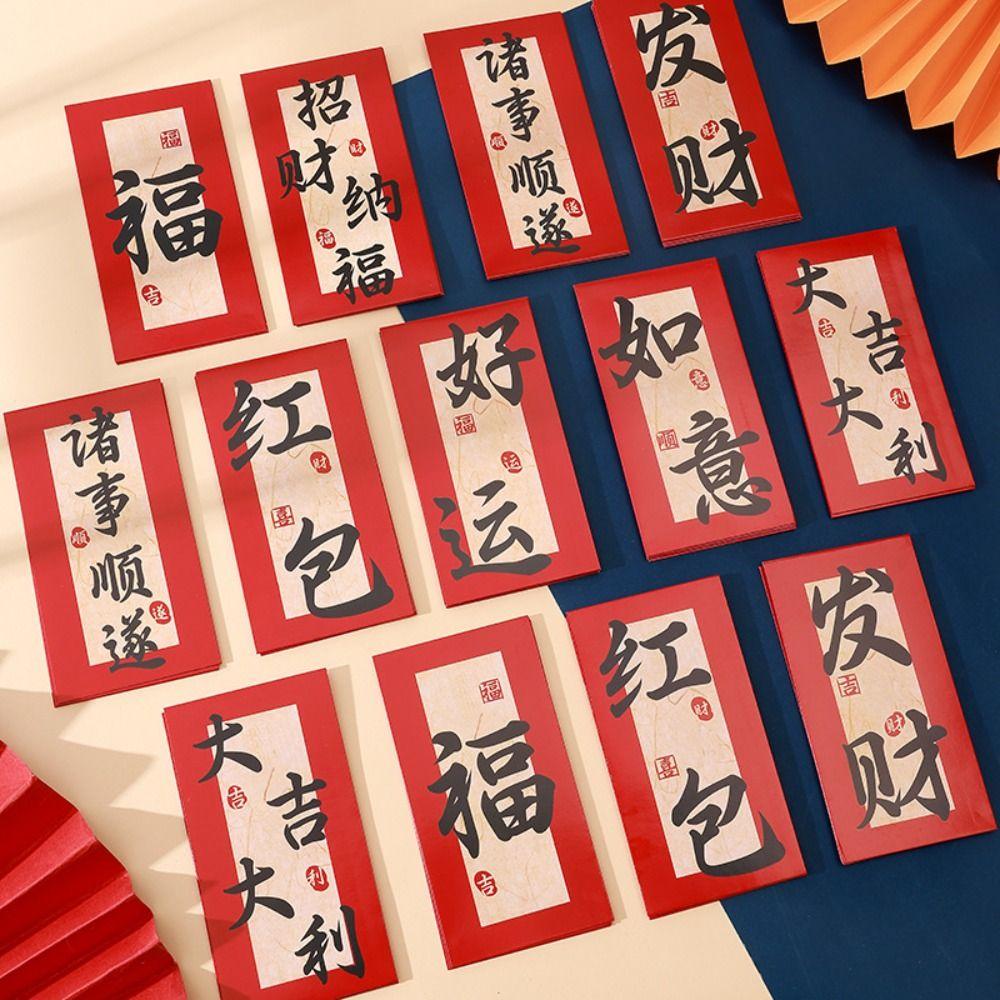 福
福
吉
招财纳福
财
福
诸事顺遂
顺
遂
发财
吉
财
诸事顺遂
顺
遂
红包
财
喜
好运
福
运
如意
意
顺
大吉大利
吉
利
大吉大利
吉
利
福
福
吉
红包
财
喜
发财
吉
财